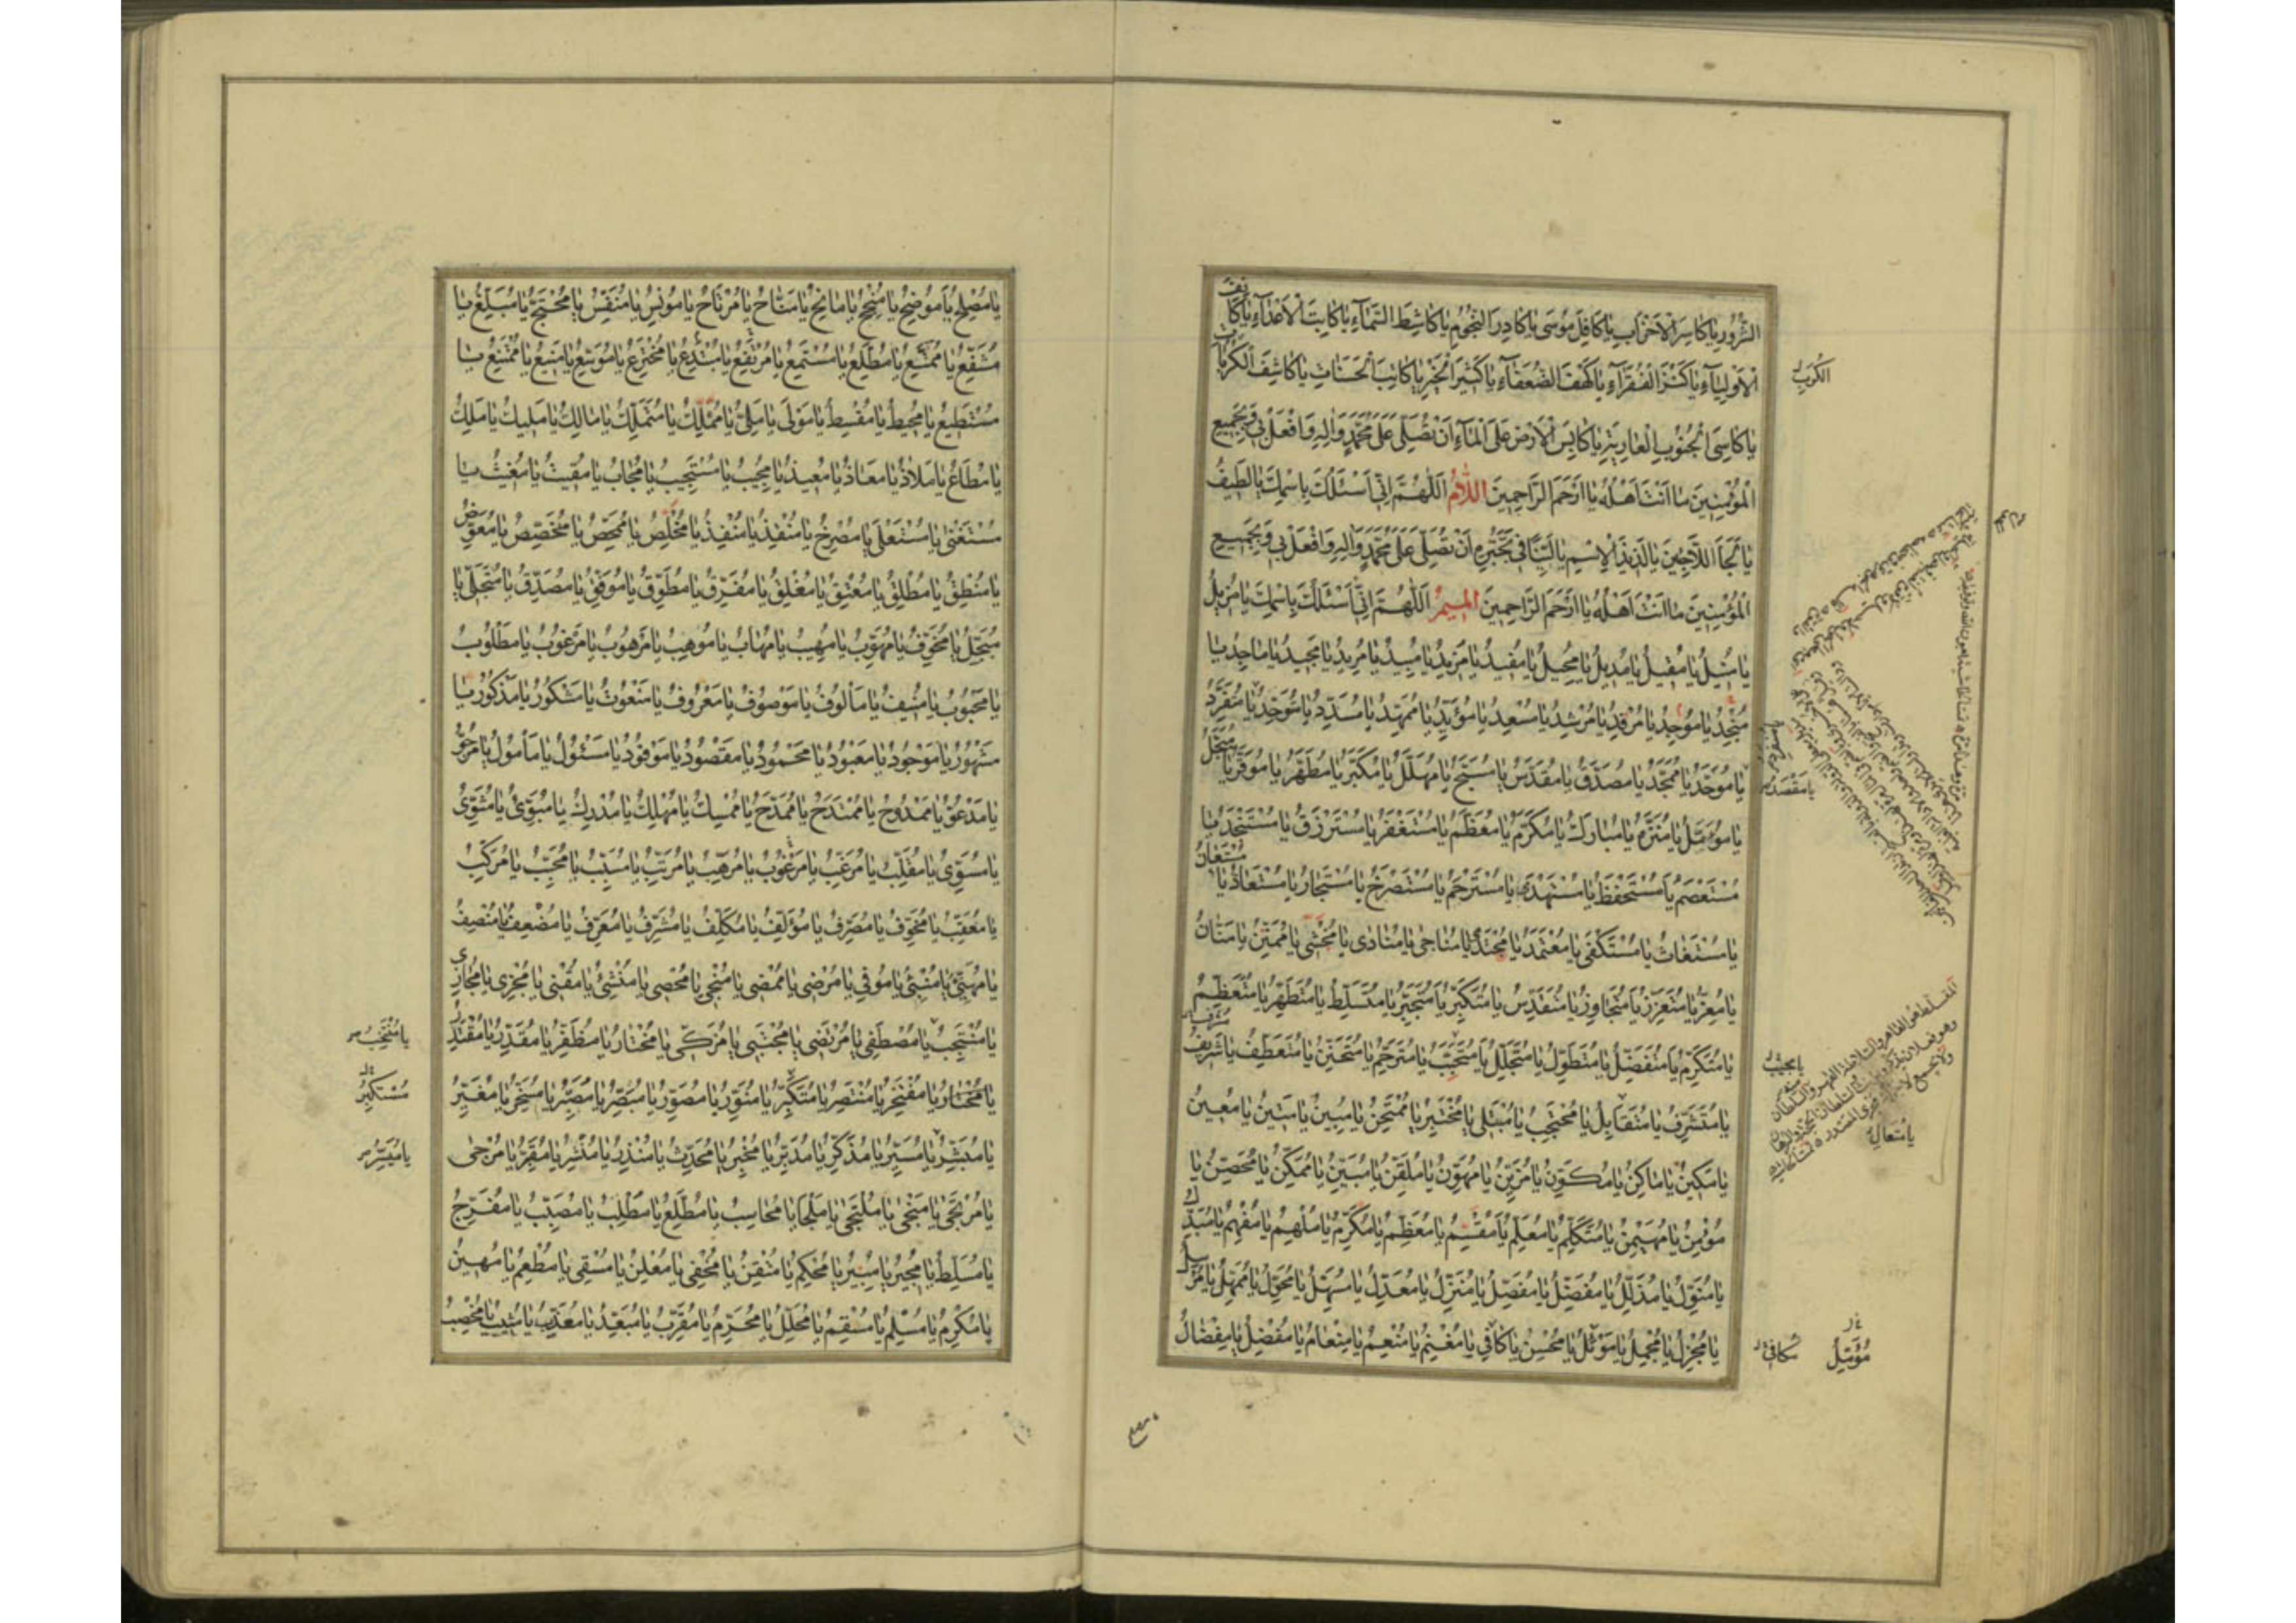 الشُّرُورِ يَا كَاسِرَ الْأَحْزَابِ يَا كَافِلَ مُوسَى يَا كَادِرَ النُّجُومِ يَا كَاشِطَ السَّمَآءِ يَا كَابِتَ الْأَعْدَآءِ يَا كَافِىَ
الْأَوْلِيَآءِ يَا كَنْزَ الْفُقَرَآءِ يَا كَهْفَ الضُّعَفَآءِ يَا كَثِيرَ الْخَيْرِ يَا كَاتِبَ الْحَسَنَاتِ يَا كَاشِفَ الْكُرُبَاتِ
يَا كَاسِىَ الْجُنُوبِ الْعَارِيَةِ يَا كَابِسَ الْأَرْضِ عَلَى الْمَآءِ أَنْ تُصَلِّىَ عَلَى مُحَمَّدٍ وَالِهِ وَافْعَلْ بِى وَبِجَمِيعِ
الْمُؤْمِنِينَ مَا أَنْتَ أَهْلُهُ يَا أَرْحَمَ الرَّاحِمِينَ اللَّامُ اَللّٰهُمَّ إِنِّى أَسْئَلُكَ بِاسْمِكَ يَا لَطِيفُ
يَا لَجَأَ اللَّاجِينَ يَا لَذِيذَ الْإِسْمِ يَا لَيِّنًا فِى تَجَبُّرِهِ أَنْ تُصَلِّىَ عَلَى مُحَمَّدٍ وَالِهِ وَافْعَلْ بِى وَبِجَمِيعِ
الْمُؤْمِنِينَ مَا أَنْتَ أَهْلُهُ يَا أَرْحَمَ الرَّاحِمِينَ الْمِيمُ اَللّٰهُمَّ إِنِّى أَسْئَلُكَ بِاسْمِكَ يَا مُزِيلُ
يَا مُنِيلُ يَا مُقِيلُ يَا مُدِيلُ يَا مُحِيلُ يَا مُفِيدُ يَا مَزِيدُ يَا مُبِيدُ يَا مُرِيدُ يَا مَجِيدُ يَا مَاجِدُ يَا
مُنْجِدُ يَا مُوجِدُ يَا مُرْفِدُ يَا مُرْشِدُ يَا مُسْعِدُ يَا مُؤَيِّدُ يَا مُمَهِّدُ يَا مُسَدِّدُ يَا مُتَوَحِّدُ يَا مُتَفَرِّدُ
يَا مُوَحَّدُ يَا مُمَجَّدُ يَا مُصَدَّقُ يَا مُقَدَّسُ يَا مُسَبَّحُ يَا مُهَلَّلُ يَا مُكَبَّرُ يَا مُطَهَّرُ يَا مُوَقَّرُ يَا مُبَجَّلُ
يَا مُؤَمَّلُ يَا مُنَزَّهُ يَا مُبَارَكُ يَا مُكَرَّمُ يَا مُعَظَّمُ يَا مُسْتَغْفَرُ يَا مُسْتَرْزَقُ يَا مُسْتَنْجَدُ يَا
مُسْتَعْصَمُ يَا مُسْتَحْفَظُ يَا مُسْتَهْدَى يَا مُسْتَرْحَمُ يَا مُسْتَصْرَخُ يَا مُسْتَجَارُ يَا مُسْتَعَاذُ يَا مُسْتَعَانُ
يَا مُسْتَغَاثُ يَا مُسْتَكْفَى يَا مُعْتَمَدُ يَا مُجْتَدَى يَا مُنَاجَى يَا مُنَادَى يَا مُخْشَى يَا مُمْتَنُّ يَا مَنَّانُ
يَا مُعِزُّ يَا مُتَعَزِّزُ يَا مُتَجَاوِزُ يَا مُتَقَدِّسُ يَا مُتَكَبِّرُ يَا مُتَجَبِّرُ يَا مُتَسَلِّطُ يَا مُتَطَهِّرُ يَا مُتَعَظِّمُ
يَا مُتَكَرِّمُ يَا مُتَفَضِّلُ يَا مُتَطَوِّلُ يَا مُتَجَلِّلُ يَا مُتَحَبِّبُ يَا مُتَرَحِّمُ يَا مُتَحَنِّنُ يَا مُتَعَطِّفُ
يَا مُتَشَرِّفُ يَا مُتَقَابِلُ يَا مُحْتَجِبُ يَا مُبْتَلِى يَا مُخْتَبِرُ يَا مُمْتَحِنُ يَا مُبِينُ يَا مَتِينُ يَا مُعِينُ
يَا مَكِينُ يَا مَاكِنُ يَا مُكَوِّنُ يَا مُزَيِّنُ يَا مُهَوِّنُ يَا مُلَقِّنُ يَا مُبَيِّنُ يَا مُمَكِّنُ يَا مُحَصِّنُ يَا
مُؤْمِنُ يَا مُهَيْمِنُ يَا مُتَكَلِّمُ يَا مُعَلِّمُ يَا مُقَسِّمُ يَا مُعَظِّمُ يَا مُكَرِّمُ يَا مُلْهِمُ يَا مُفْهِمُ يَا مُبَدِّلُ
يَا مُنَوِّلُ يَا مُذَلِّلُ يَا مُفَضِّلُ يَا مُفَصِّلُ يَا مُنَزِّلُ يَا مُعَدِّلُ يَا مُسَهِّلُ يَا مُحَوِّلُ يَا مُمَهِّلُ يَا مُرْسِلُ
يَا مُجْزِلُ يَا مُجْمِلُ يَا مَوْئِلُ يَا مُحْسِنُ يَا كَافِى يَا مُغْنِمُ يَا مُنْعِمُ يَا مِنْعَامُ يَا مُفْضِلُ يَا مِفْضَالُ
الْكُرَبِ
يَا مُقْصَدُ
يَا مُتَعَالِ
مُكَافِى
مُؤَمِّلُ
يَا مُصْلِحُ يَا مُوضِحُ يَا مُنْجِحُ يَا مَانِحُ يَا مَنَّاحُ يَا مُرْتَاحُ يَا مُونِسُ يَا مُنَفِّسُ يَا مُحْتَجُّ يَا مُبَلِّغُ يَا
مُشَفِّعُ يَا مُمَتِّعُ يَا مُطَّلِعُ يَا مُسْتَمِعُ يَا مُرْتَفِعُ يَا مُبْتَدِعُ يَا مُخْتَرِعُ يَا مُوَسِّعُ يَا مَنِيعُ يَا مُمْتَنِعُ يَا
مُسْتَطِيعُ يَا مُحِيطُ يَا مُقْسِطُ يَا مَوْلَى يَا مَلِىُّ يَا مُمَلِّكُ يَا مُتَمَلِّكُ يَا مَالِكُ يَا مَلِيكُ يَا مَلِكُ
يَا مُطَاعُ يَا مَلَاذُ يَا مَعَاذُ يَا مُعِيذُ يَا مُجِيبُ يَا مُسْتَجِيبُ يَا مُجَابُ يَا مُقِيتُ يَا مُغِيثُ يَا
مُسْتَغْنِى يَا مُسْتَعْلِى يَا مُصْرِخُ يَا مُنْقِذُ يَا مُنْفِذُ يَا مُخَلِّصُ يَا مُمَحِّصُ يَا مُخَصِّصُ يَا مُعَوِّضُ
يَا مُنْطِقُ يَا مُطْلِقُ يَا مُعْتِقُ يَا مُغْلِقُ يَا مُفَرِّقُ يَا مُطَوِّقُ يَا مُوَفِّقُ يَا مُصَدِّقُ يَا مُتَجَلِّى يَا
مُبَجِّلُ يَا مُخَوِّفُ يَا مُهَوِّبُ يَا مُهِيبُ يَا مُهَابُ يَا مُوهِبُ يَا مَرْهُوبُ يَا مَرْغُوبُ يَا مَطْلُوبُ
يَا مَحْبُوبُ يَا مُنِيفُ يَا مَأْلُوفُ يَا مَوْصُوفُ يَا مَعْرُوفُ يَا مَنْعُوتُ يَا مَشْكُورُ يَا مَذْكُورُ يَا
مَشْهُورُ يَا مَوْجُودُ يَا مَعْبُودُ يَا مَحْمُودُ يَا مَقْصُودُ يَا مَوْفُودُ يَا مَسْئُولُ يَا مَأْمُولُ يَا مَرْجُوُّ
يَا مَدْعُوُّ يَا مَمْدُوحُ يَا مُمْتَدَحُ يَا مُمَدَّحُ يَا مُمْسِكُ يَا مُهْلِكُ يَا مُدْرِكُ يَا مُبَوِّئُ يَا مُثَوِّى
يَا مُسَوِّى يَا مُقَلِّبُ يَا مُرَغِّبُ يَا مَرْغُوبُ يَا مُرَهِّبُ يَا مُرَتِّبُ يَا مُسَبِّبُ يَا مُحَبِّبُ يَا مُرَكِّبُ
يَا مُعَقِّبُ يَا مُخَوِّفُ يَا مُصَرِّفُ يَا مُؤَلِّفُ يَا مُكَلِّفُ يَا مُشَرِّفُ يَا مُعَرِّفُ يَا مُضْعِفُ يَا مُنْصِفُ
يَا مُهَنِّئُ يَا مُنْبِئُ يَا مُوفِى يَا مُرْضِى يَا مُمْضِى يَا مُنْجِى يَا مُحْصِى يَا مُنْشِئُ يَا مُقْنِى يَا مُجْزِى يَا مُجَازِى
يَا مُنْتَجِبُ يَا مُصْطَفِى يَا مُرْتَضِى يَا مُجْتَبِى يَا مُزَكِّى يَا مُخْتَارُ يَا مُظَفِّرُ يَا مُقَدِّرُ يَا مُقْتَدِرُ
يَا مُخْتَارُ يَا مُفْتَخِرُ يَا مُنْتَصِرُ يَا مُتَكَبِّرُ يَا مُنَوِّرُ يَا مُصَوِّرُ يَا مُبَصِّرُ يَا مُصَبِّرُ يَا مُسَخِّرُ يَا مُغَيِّرُ
يَا مُبَشِّرُ يَا مُيَسِّرُ يَا مُذَكِّرُ يَا مُدَبِّرُ يَا مُخْبِرُ يَا مُحَدِّثُ يَا مُنْذِرُ يَا مُنْشِرُ يَا مُقِرُّ يَا مُرْجَى
يَا مُرْتَجَى يَا مَنْجَى يَا مُلْتَجَى يَا مَلْجَأُ يَا مُحَاسِبُ يَا مُطَّلِعُ يَا مَطْلَبُ يَا مُصَبِّبُ يَا مُفَرِّجُ
يَا مُسَلِّطُ يَا مُجِيرُ يَا مُبِيرُ يَا مُحْكِمُ يَا مُتْقِنُ يَا مُخْفِى يَا مُعْلِنُ يَا مُسْقِى يَا مُطْعِمُ يَا مُهِينُ
يَا مُكْرِمُ يَا مُسْلِمُ يَا مُسْقِمُ يَا مُحَلِّلُ يَا مُحَرِّمُ يَا مُقَرِّبُ يَا مُبَعِّدُ يَا مُعَذِّبُ يَا مُثِيبُ يَا مُخْصِبُ
يَا مُنْتَخِبُ
مُسْتَكْبِرُ
يَا مُفَسِّرُ